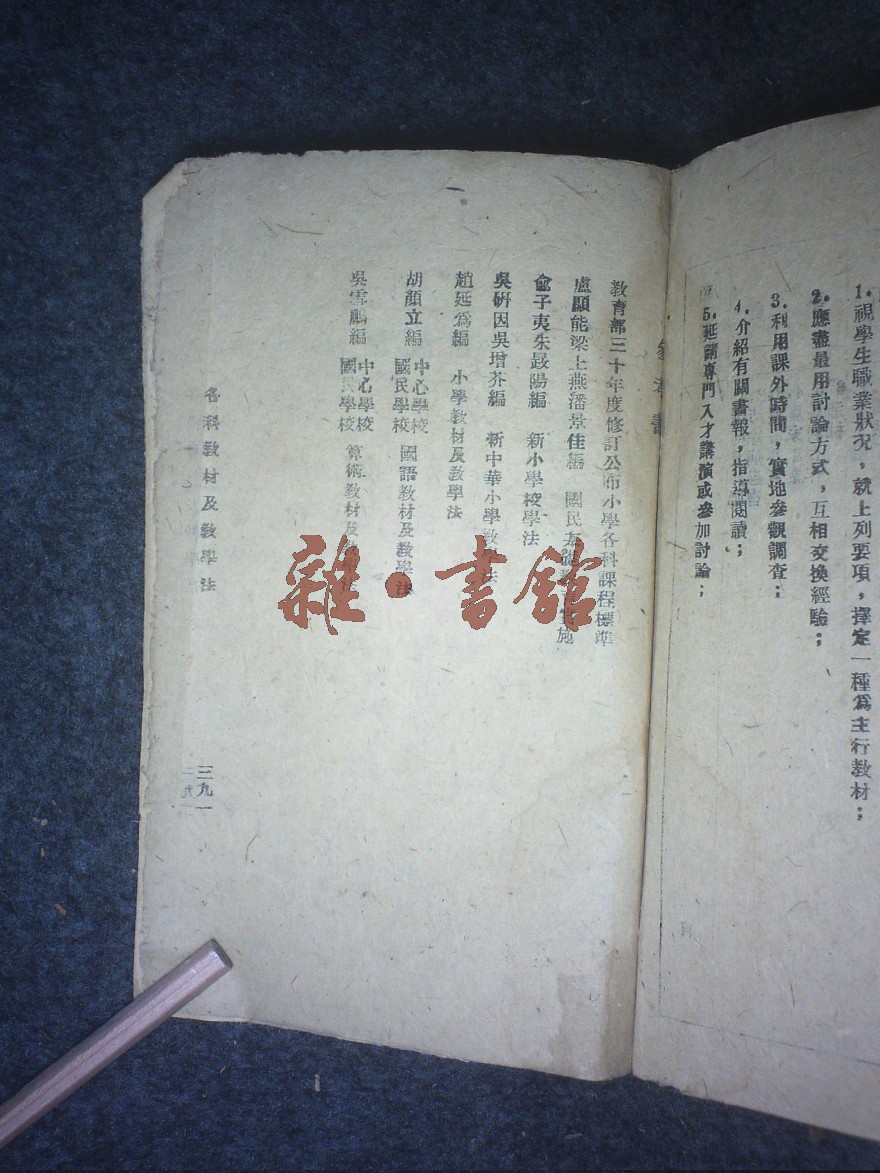 1.視學生職業狀況，就上列要項，擇定一種爲主行教材；
2.應盡量用討論方式，互相交換經驗；
3.利用課外時間，實地參觀調查；
4.介紹有關書報，指導閱讀；
5.延請專門人才講演或參加討論；
參考書
教育部三十年度修訂公布小學各科課程標準
盧顯能梁上燕潘景佳編 國民 施
兪子夷朱晸陽編 新小學校學法
吳硏因吳增芥編 新中華小學教學法
趙延爲編 小學教材及教學法
胡顏立編 中心學校國民學校 國語教材及教學法
吳雪鵬編 中心學校國民學校 算術教材及教學法
各科教材及教學法
三九一
雜·書館